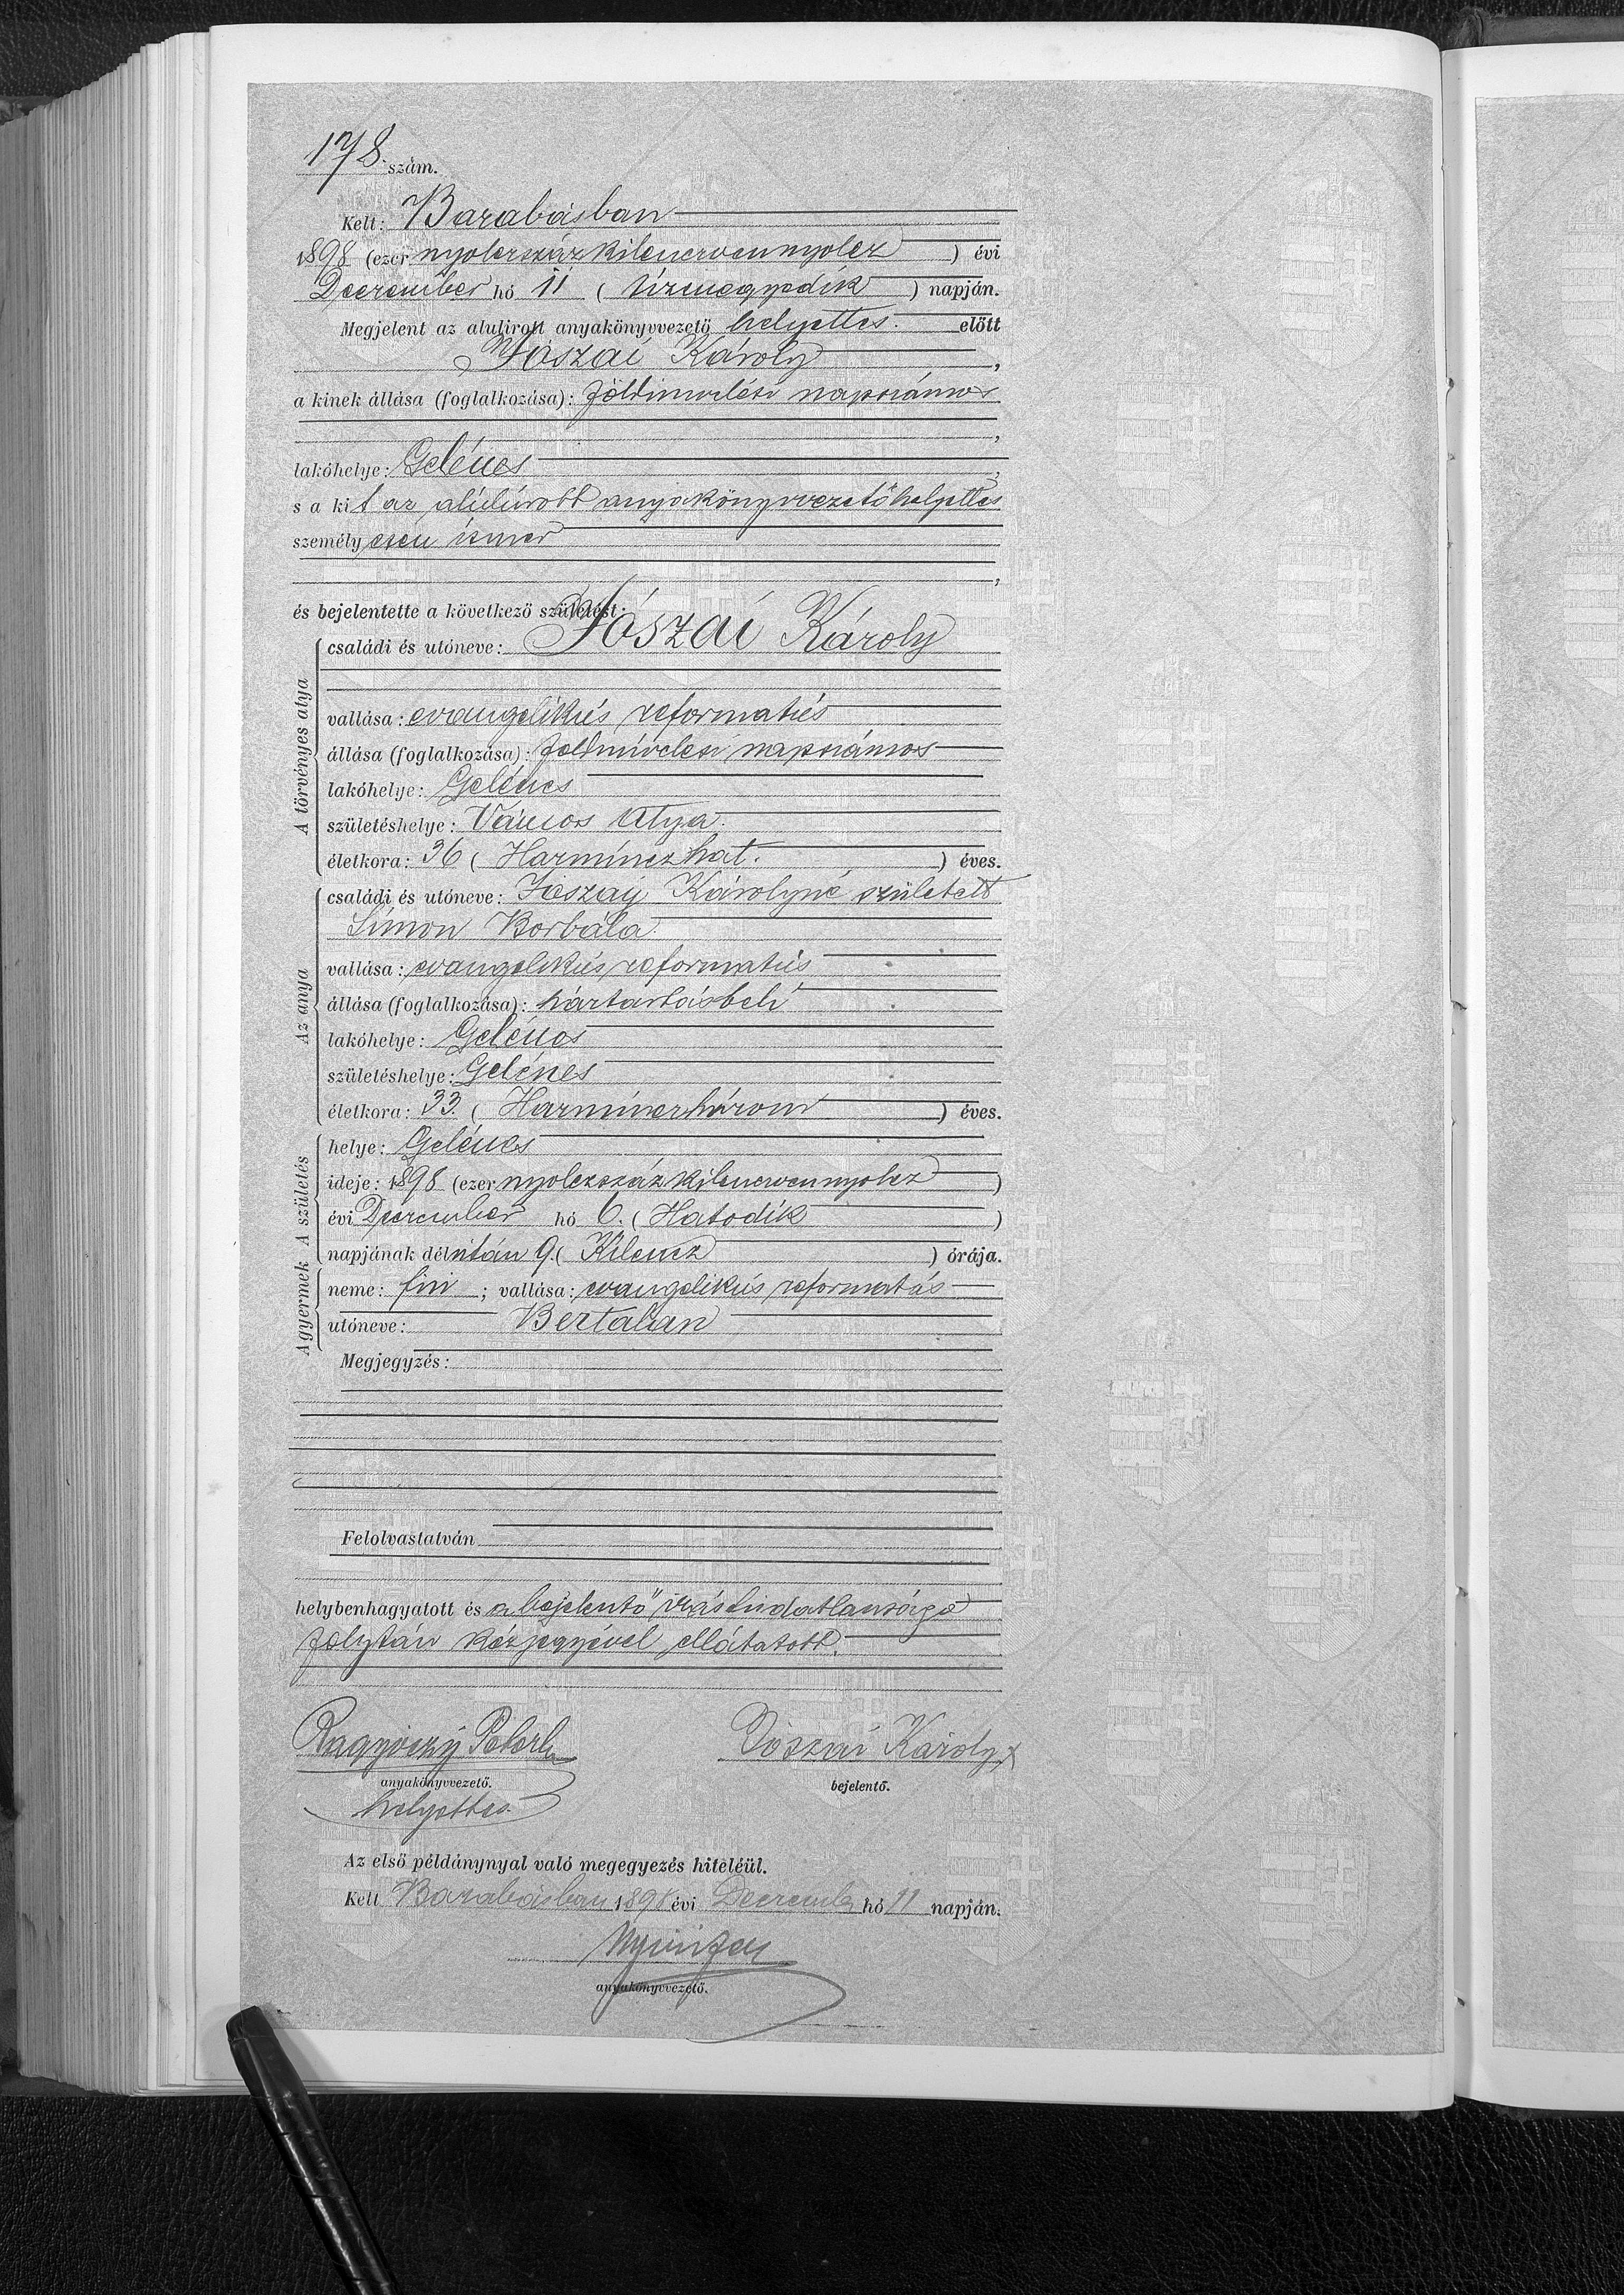 178. szám.
Kelt: Barabásban
1898 (ezer nyolczszázkilenczvennyolcz) évi
Deczember hó 11 (tizenegyedik) napján.
Megjelent az alulirott anyakönyvvezető helyettes. előtt
Jószai Károly,
a kinek állása (foglalkozása): földmivelési napszámos
,
lakóhelye: Gelénes,
s a kit az alúlirott anyakönyvvezető helyettes
személyesen ismer
,
és bejelentette a következő születést:
A törvényes atya
családi és utóneve: Jószai Károly
vallása: evangelikús reformatús
állása (foglalkozása): földmivelesi napszámos
lakóhelye: Gelénes
születéshelye: Vámos Atya.
életkora: 36 (Harminczhat.) éves.
Az anya
családi és utóneve: Jószay Károlyné született
Simon Borbála.
vallása: evangelikús reformatús
állása (foglalkozása): háztartásbeli
lakóhelye: Gelénes
születéshelye: Gelénes
életkora: 33. (Harminczhárom) éves.
A születés
helye: Gelénes
ideje: 1898 (ezer nyolczszázkilenczvennyolcz)
évi Deczember hó 6. (Hatodik)
napjának délután 9. (Kilencz) órája.
A gyermek
neme: fiú; vallása: evangelikús reformatús
utóneve: Bertalan
Megjegyzés:
Felolvastatván
helybenhagyatott és a bejelentő irástudatlansága
folytán kézjegyével ellátatott.
Jószai Károly x
anyakönyvvezető. bejelentő.
helyettes.
Az első példánynyal való megegyezés hiteléül.
Kelt Barabásban 1898 évi Deczember hó 11 napján.
anyakönyvvezető.